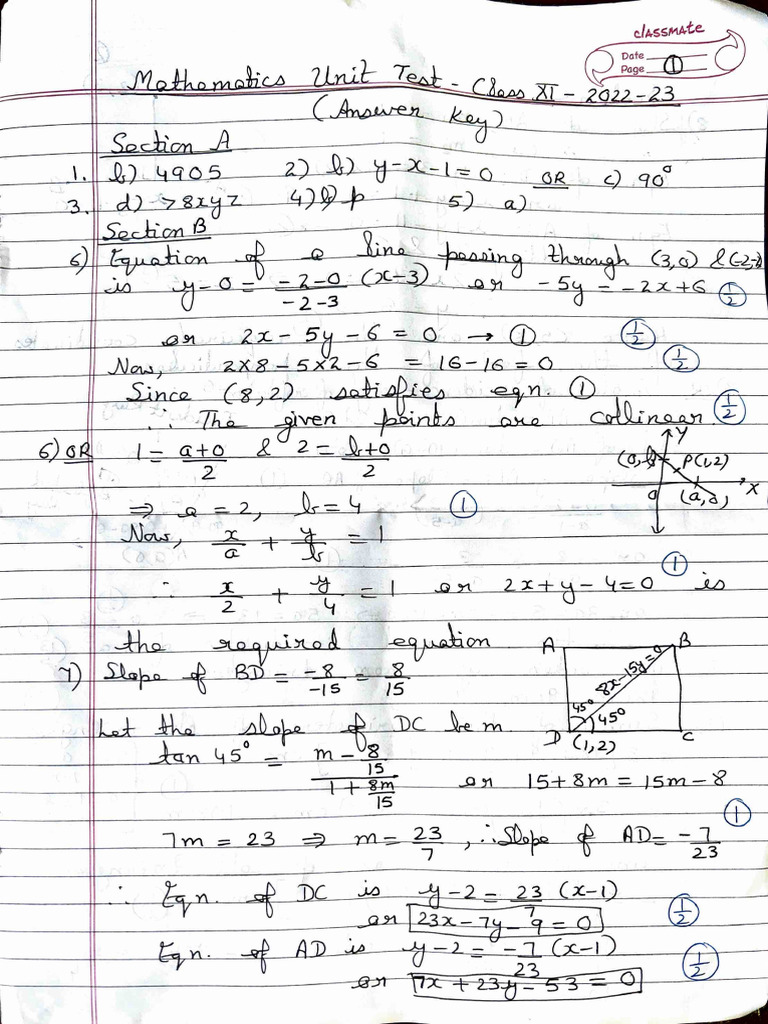 classmate
Date
Page 1
Mathematics Unit Test - Class XI - 2022-23
(Answer Key)
Section A
1. b) 4905 2) b) y-x-1=0 OR c) 90°
3. d) >8xyz 4) b) p 5) a)
Section B
6) Equation of a line passing through (3,0) & (-2,-2)
is y-0 = \frac{-2-0}{-2-3} (x-3) or -5y = -2x+6 ½
or 2x-5y-6=0 → ① ½
Now, 2×8-5×2-6 = 16-16=0 ½
Since (8,2) satisfies eqn. ①
∴ The given points are collinear ½
6) OR 1 = \frac{a+0}{2} & 2 = \frac{b+0}{2}
Y
(0,b) P(1,2)
0 (a,0) X
⇒ a = 2, b = 4 ①
Now, \frac{x}{a} + \frac{y}{b} = 1
∴ \frac{x}{2} + \frac{y}{4} = 1 or 2x+y-4=0 is ①
the required equation
7) Slope of BD = \frac{-8}{-15} = \frac{8}{15}
A B
8x-15y=0
45° 45°
D (1,2) C
Let the slope of DC be m.
tan 45° = \frac{m-\frac{8}{15}}{1+\frac{8m}{15}} or 15+8m = 15m-8
7m = 23 ⇒ m = \frac{23}{7}, ∴ Slope of AD = \frac{-7}{23} ①
∴ Eqn. of DC is y-2 = \frac{23}{7} (x-1)
or 23x-7y-9=0 ½
Eqn. of AD is y-2 = \frac{-7}{23} (x-1)
or 7x+23y-53=0 ½